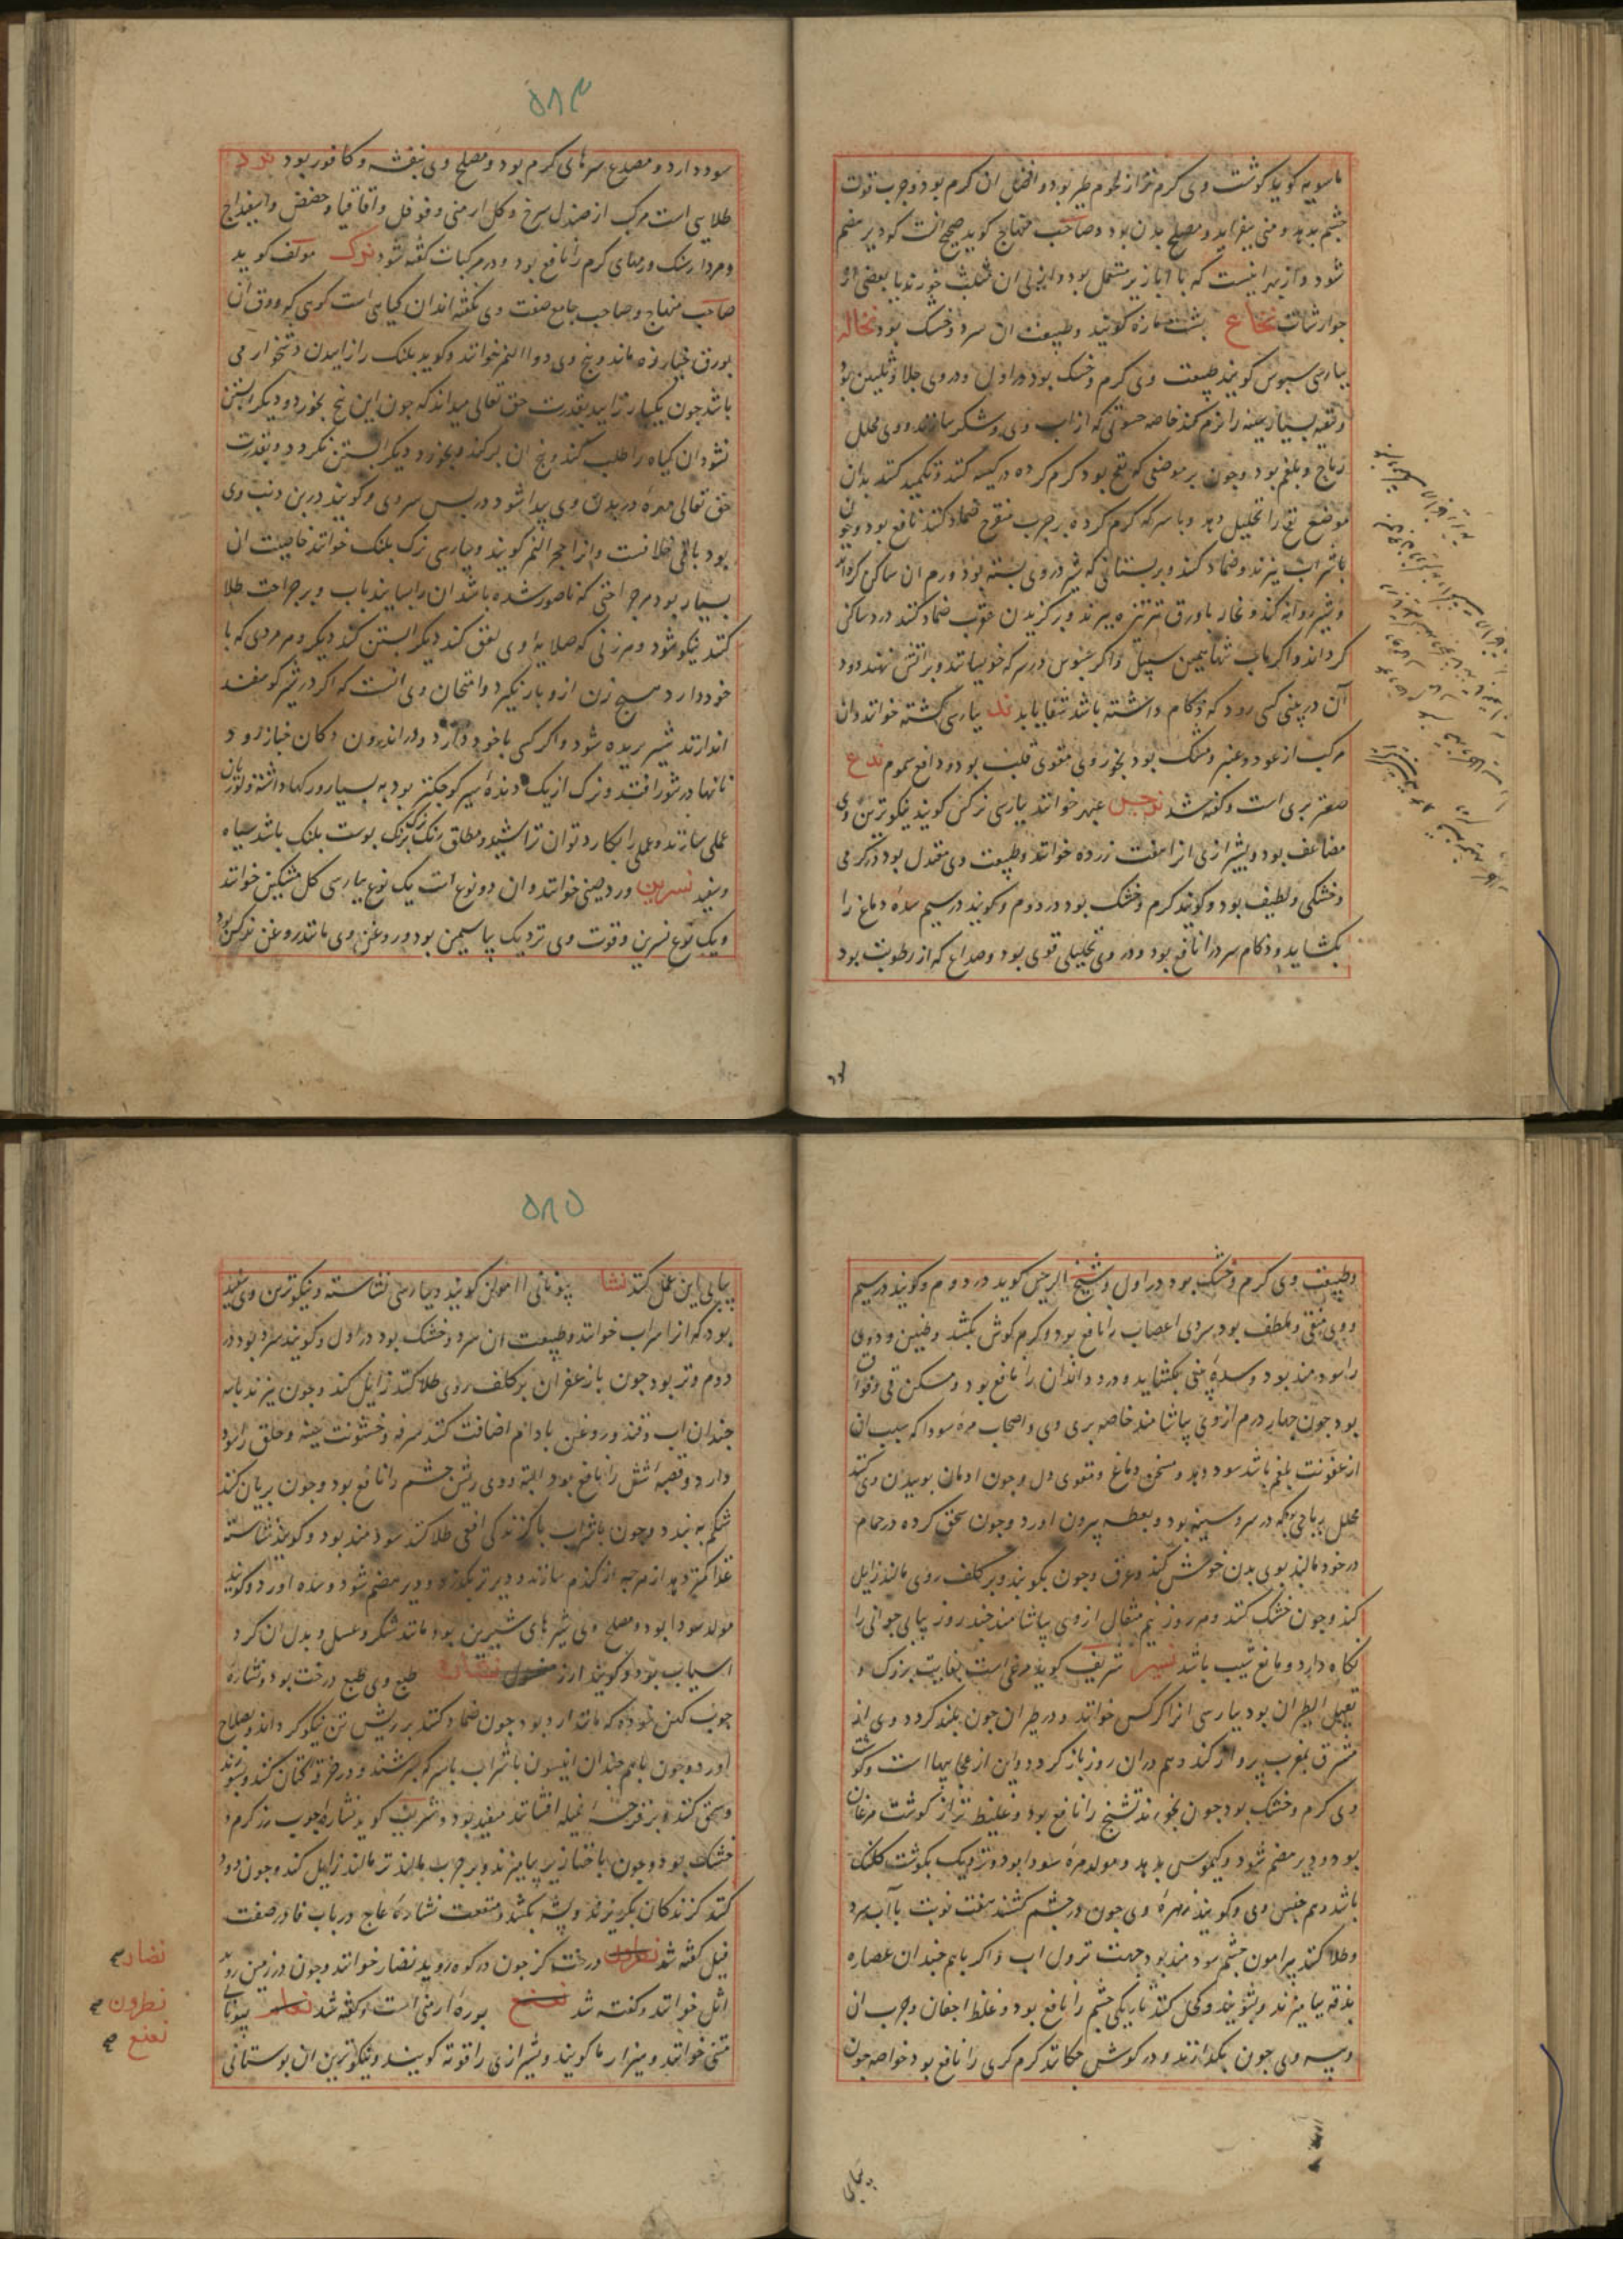 ماسویه کوید کوشت وی کرم تر از لحوم طیر بود و افضل ان کرم بود و چرب قوت
چشم بدهد و منی بیفزاید و مصلح بدن بود و صاحب منهاج کوید صحیح انست که دیر هضم
شود و از بهر اینست که با ابازیر مستعمل بود و از پی ان مثلث خورند یا بعضی از
جوارشات نخاع پشت مازه کویند و طبیعت ان سرد و خشک بود نخاله
بپارسی سبوس کویند طبیعت وی کرم و خشک بود در اول و در وی جلا و تلیین بود
و تنقیه بسیار سینه را نرم کند خاصه حسوئی که از اب وی و شکر سازند و وی محلل
ریاح و بلغم بود و چون بر موضعی که نفخ بود کرم کرده در کیسه کنند و تکمید کنند بدان
موضع نفخ را تحلیل دهد و با سرکه کرم کرده بر جرب متقرح ضماد کنند نافع بود و چون
با شراب بپزند و ضماد کنند بر پستانی که شیر در وی بسته بود ورم ان ساکن کرداند
و شیر روانه کند و نخاله با ورق ترب بپزند و بر کزیدن عقرب ضماد کنند درد ساکن
کرداند و اکر باب تنها همچنین سبیل و اکر سبوس در سرکه خویسانند و بر اتش نهند دود
آن در بینی کسی رود که زکام داشته باشد شفا یابد ند بپارسی کشته خوانند و ان
مرکب از عود و عنبر و مشک بود بخور وی مقوی قلب بود و دافع سموم ندع
صعتر بری است و کفته شد نرجس عبهر خوانند بپارسی نرکس کویند نیکوترین وی
مضاعف بود و بشیرازی انرا هفت زرده خوانند و طبیعت وی معتدل بود در کرمی
و خشکی و لطیف بود و کویند کرم و خشک بود در دوم و کویند در سیم سده دماغ را
بکشاید و زکام سرد را نافع بود و در وی تحلیلی قوی بود و صداع که از رطوبت بود
۵۸۴
سود دارد و مصدع سرهای کرم بود و مصلح وی بنفشه و کافور بود نرد
طلایی است مرکب از صندل سرخ و کل ارمنی و فوفل و اقاقیا و حضض و اسفیداج
و مردارسنک ورمهای کرم را نافع بود و در مرکبات کفته شود نرک مولف کوید
صاحب منهاج و صاحب جامع صفت وی نکفته اند ان کیاهی است کوهی که ورق ان
بورق خیارزه ماند و بیخ وی دواالنمر خوانند و کوید پلنک را زاییدن دشخوار می
باشد چون یکبار زایید بقدرت حق تعالی میداند که چون این بیخ بخورد و دیکر ابستن
نشود ان کیاه را طلب کند و بیخ ان برکند و بخورد دیکر ابستن نکردد و بقدرت
حق تعالی مهره در بدن وی پیدا شود در پس سر وی و کویند در بن دنب وی
بود باقی خلافست و انرا حجر النمر کویند و بپارسی نرک پلنک خوانند خاصیت ان
بسیار بود هر جراحتی که ناصور شده باشد ان را بسایند باب و بر جراحت طلا
کنند نیکو شود و هر زنی که صلایه وی لعق کند دیکر ابستن نشود دیکر هر مردی که با
خود دارد هیچ زن از و بار نکیرد و امتحان وی انست که اکر در شیر کوسفند
اندازند شیر بریده شود و اکر کسی با خود دارد و در اندرون دکان خباز رود
نانها در تنور افتد و نرک از یک
عملی سازند و عملی را بکارد توان تراشید و مطلق رنک نرک برنک پوست پلنک باشد سیاه
و سفید نسرین ورد صینی خوانند و ان دو نوع است یک نوع بپارسی کل مشکین خوانند
و یک نوع نسرین و قوت وی نزدیک بیاسمین بود و روغن وی مانند روغن نرکس بود
و طبیعت وی کرم و خشک بود در اول و شیخ الرئیس کوید در دوم و کویند در سیم
و وی منقی و ملطف بود سردی اعصاب را نافع بود و کرم کوش بکشد و طنین و دوی
را سودمند بود و سده بینی بکشاید و درد دندان را نافع بود و مسکن قی و فواق
بود چون چهار درم از وی بیاشامند خاصه بری وی و اصحاب مره سودا که سبب ان
از عفونت بلغم باشد سود دهد و مسخن دماغ و مقوی دل و چون ادمان بوییدن وی کنند
محلل ریاحی بود که در سر و سینه بود و بعطسه بیرون اورد و چون سحق کرده در حمام
در خود مالند بوی بدن خوش کند و عرق و چون بکوبند و بر کلف روی مالند زایل
کند و چون خشک کنند و هر روز نیم مثقال از وی بیاشامند چند روز پیاپی جوانی را
نکاه دارد و مانع شیب باشد نسر شریف کوید مرغی است بغایت بزرک و
ثقیل الطیران بود بپارسی انرا کرکس خوانند و در طیران چون بلند کردد وی از
مشرق بمغرب پرواز کند و هم در ان روز باز کردد و این از عجایبها است و کوشت
وی کرم و خشک بود چون بخورند تشنج را نافع بود و غلیظ تر از کوشت مرغان
بود و دیر هضم شود و کیموس بد دهد و مولد مره سودا بود و نزدیک بکوشت کلنک
باشد و هم جنس وی و کویند زهره وی چون در چشم کشند هفت نوبت باآب سرد
و طلا کنند پیرامون چشم سودمند بود جهت نزول اب و اکر باهم چندان عصاره
بیامیزند و کحل کنند تاریکی چشم را نافع بود و غلظ اجفان و جرب ان
و پیه وی چون بکدازند و در کوش چکانند کرم کری را نافع بود خواصه چون
پیاپی
۵۸۵
پیاپی این عمل کنند نشا بیونانی امولن کویند و بپارسی نشاسته و نیکوترین وی سفید
بود که انرا سراب خوانند و طبیعت ان سرد و خشک بود در اول و کویند سرد بود در
دوم و تر بود چون با زعفران بر کلف روی طلا کنند زایل کند و چون بپزند با نه
چندان اب و قند و روغن بادام اضافت کنند سرفه و خشونت سینه و حلق را سود
دارد و قصبه شش را نافع بود البته و وی ریش چشم را نافع بود و چون بریان کنند
شکم به بندد و چون با شراب با کزندکی افعی طلا کنند سودمند بود و کویند نشاسته
غذا کمتر دهد از هرچه از کندم سازند و دیرتر بکذرد و دیر هضم شود و سده اورد و کویند
مولد سودا بود و مصلح وی شیرهای شیرین بود مانند شکر و عسل و بدل ان کرد
اسیاب بود و کویند ارز نشاره طبع وی طبع درخت بود و نشاره
چوب کهن خورده که مانند ارد بود چون ضماد کنند بر ریش تن نیکو کرداند و بصلاح
اورد و چون باهم چندان انیسون با شراب یا سرکه بسرشند و در خرقه کتان کنند و بسوزند
و سحق کنند و بر قرحه نمله افشانند مفید بود و شریف کوید نشاره چوب رز کرم و
خشک بود و چون با خنازیر بیامیزند و بر جرب مالند تر مالند زایل کند و چون دود
کنند کزندکان بکریزند و پشه بکشد و منفعت نشاره عاج در باب فا در صفت
فیل کفته شد درخت کز چون در کوه روید نضار خوانند و چون در زمین روید
اثل خوانند و کفته شد بوره ارمنی است و کفته شد بیونانی
مثنی خوانند و میزار ما کویند و بشیرازی راقوته کویند و نیکوترین ان بوستانی
نضار صح
نطرون صح
نعنع صح